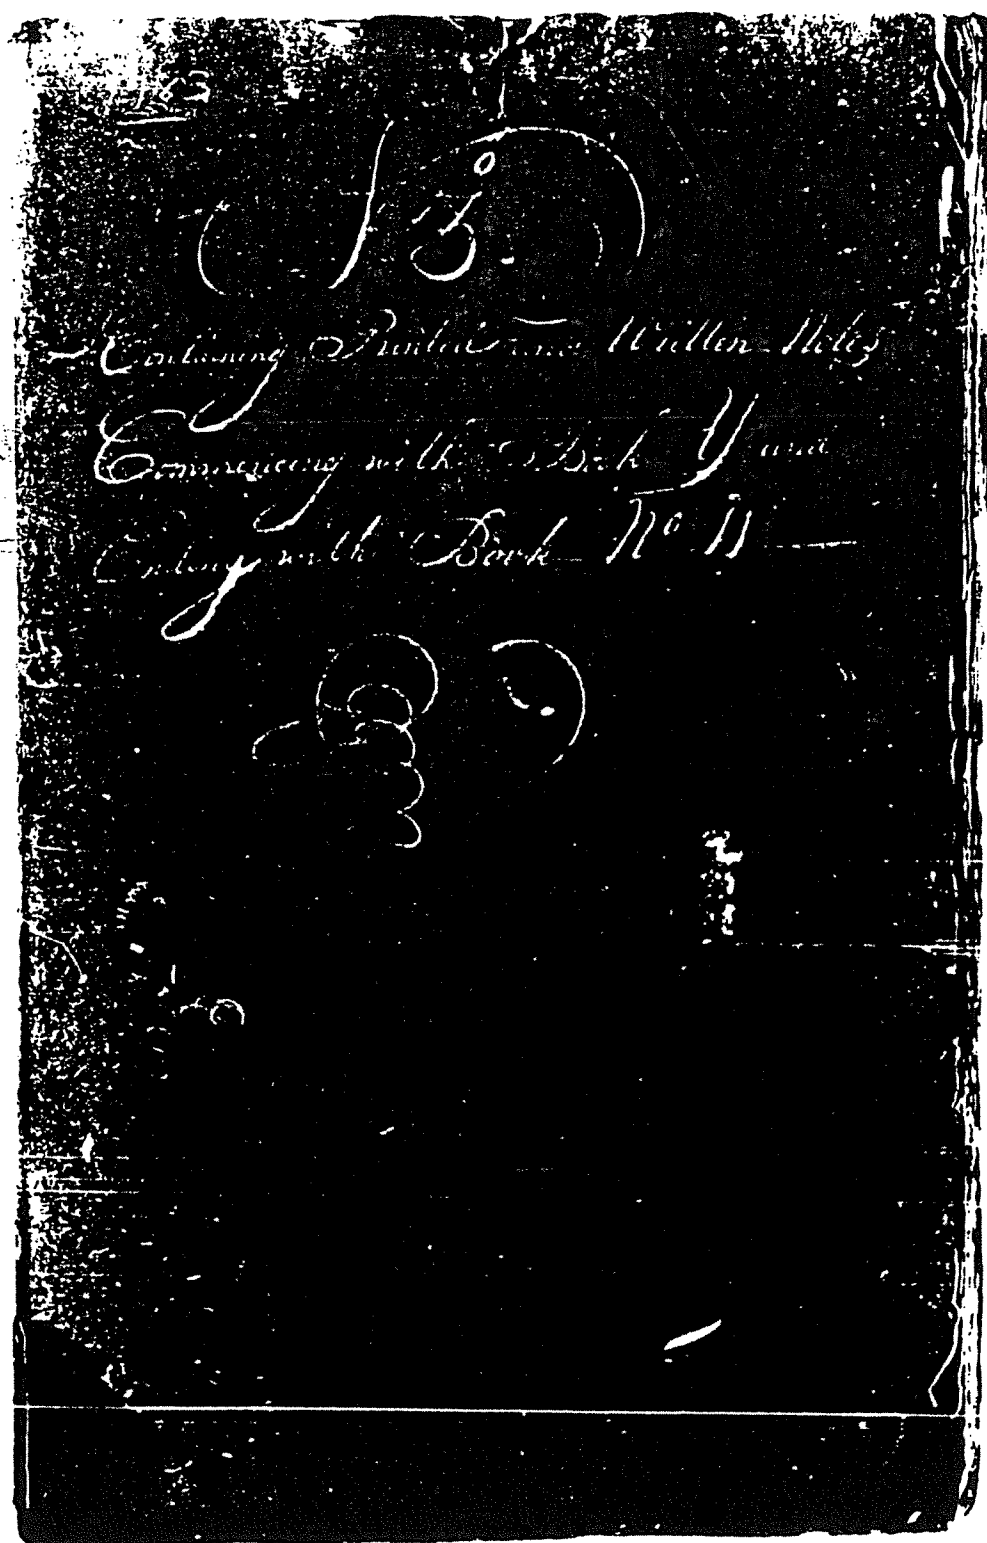 Containing Printed and Written Notes
Commencing with Book Y and
Ending with Book No 11